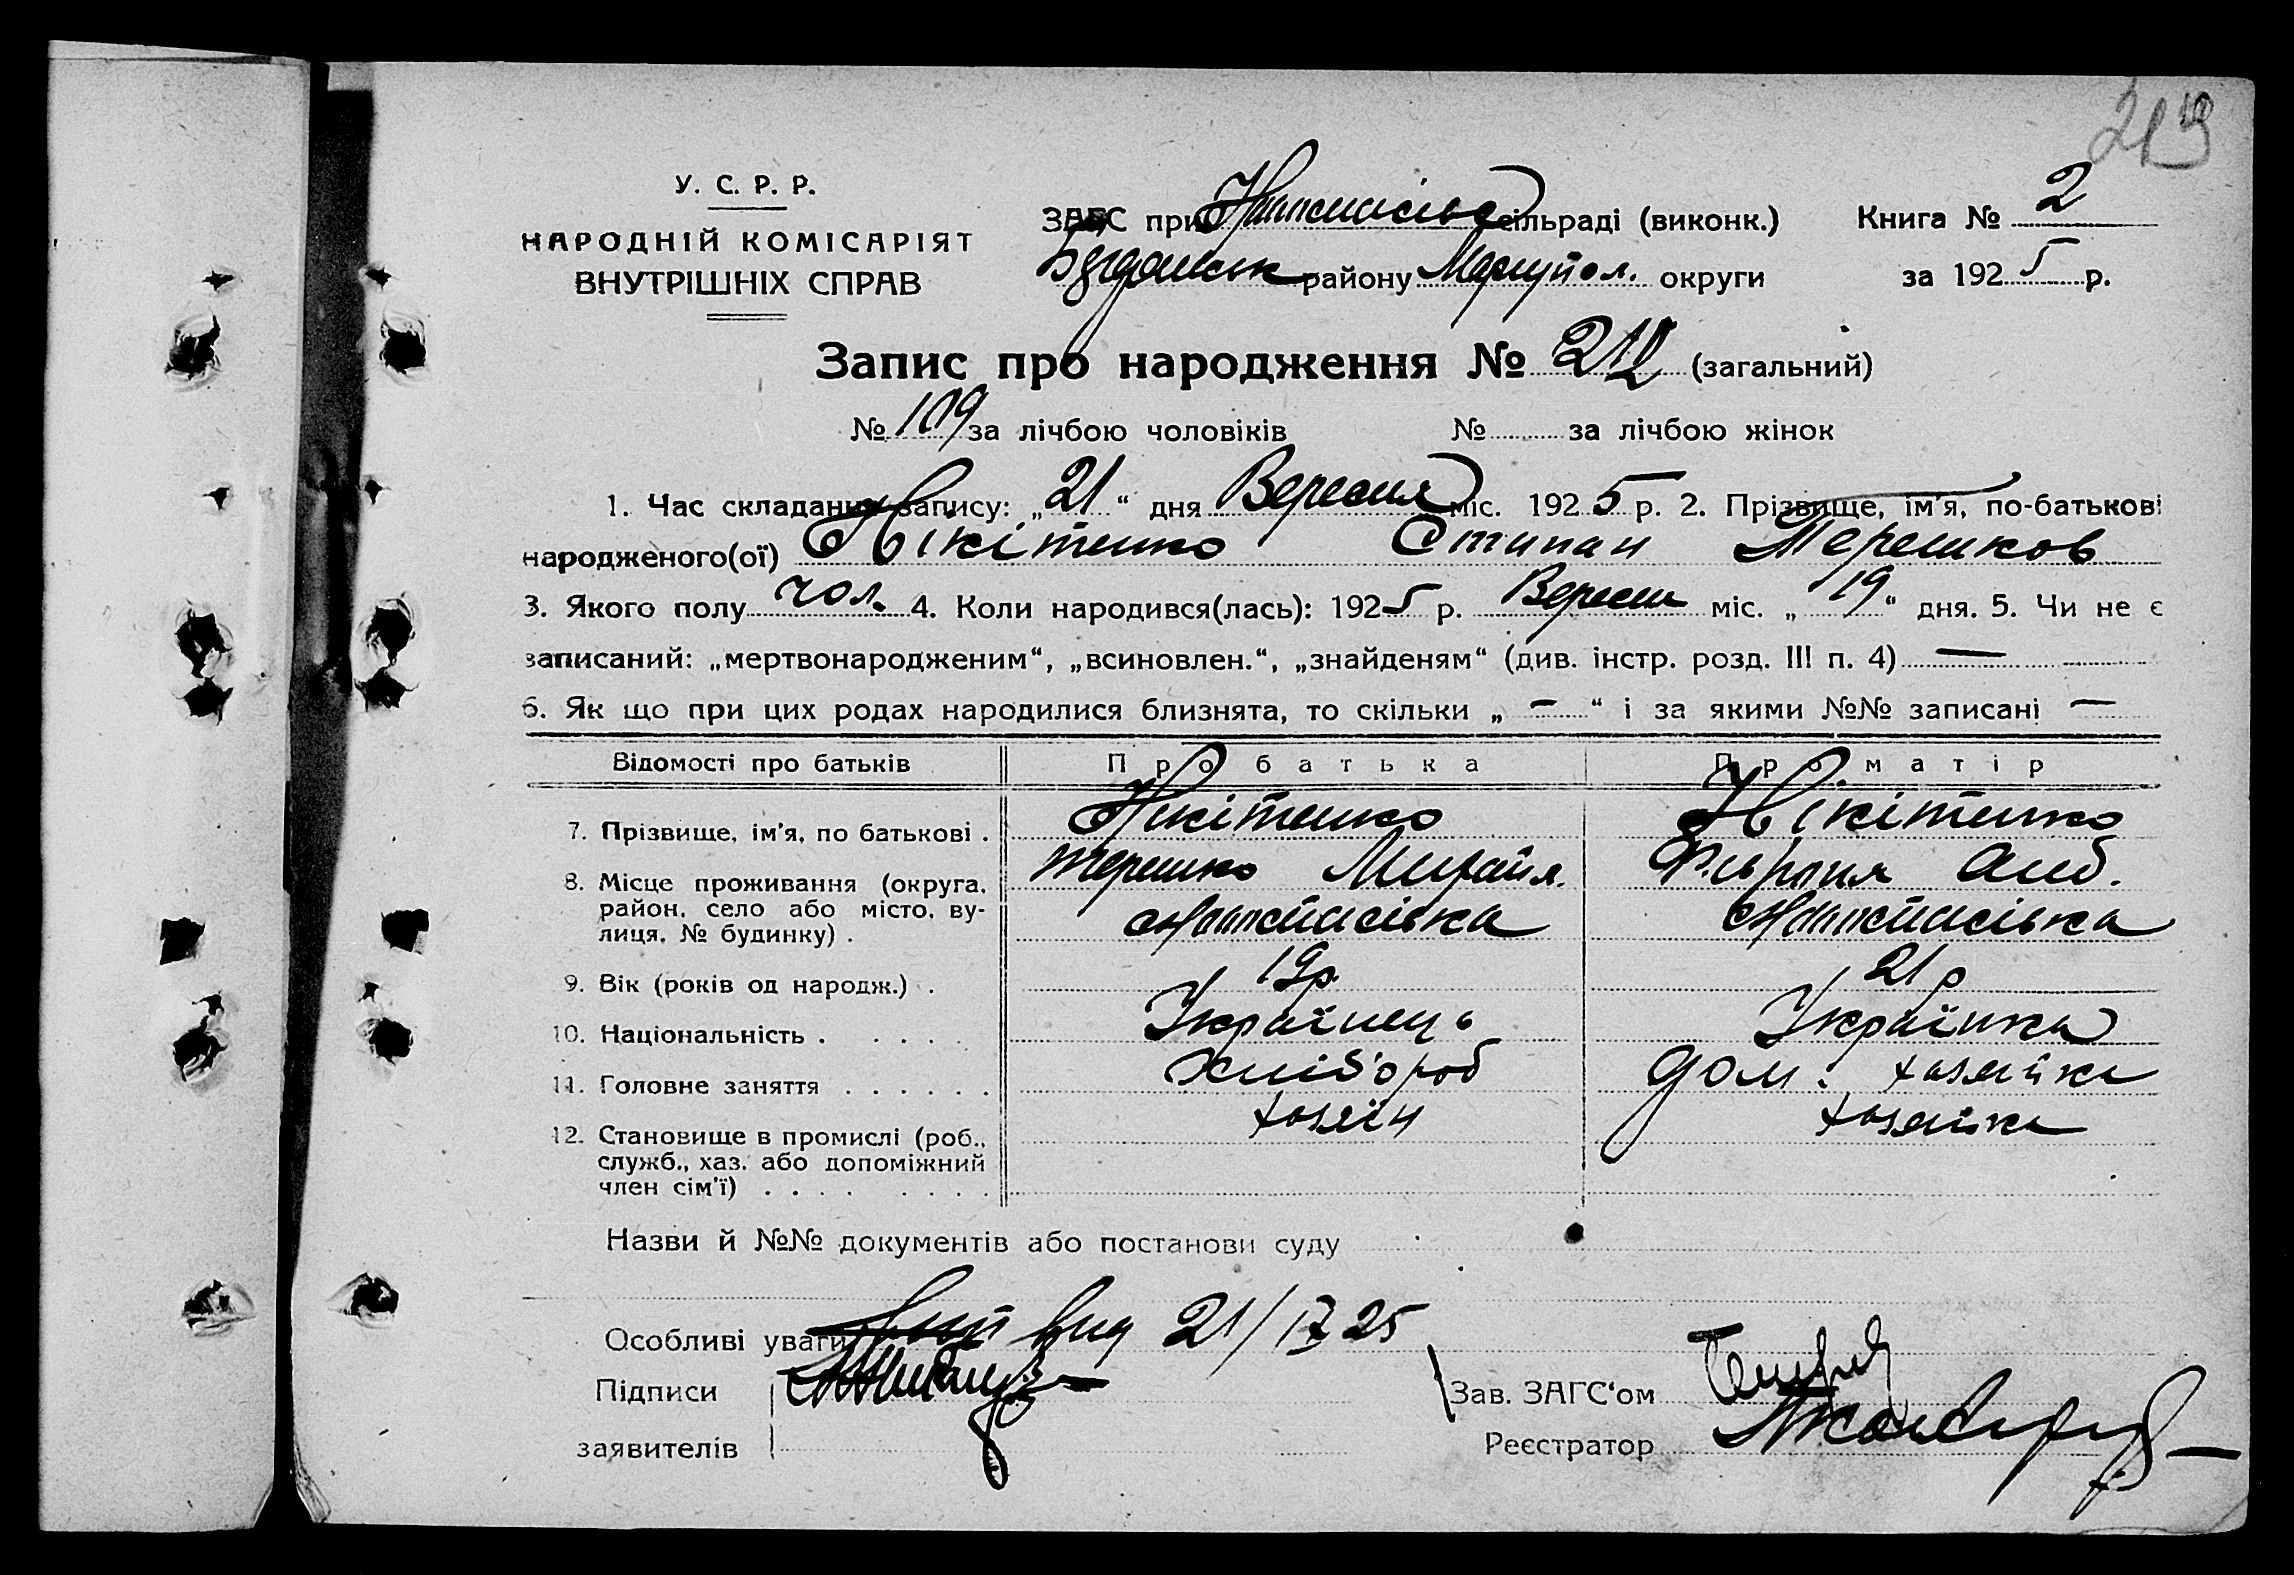 213
У. С. Р. Р.
НАРОДНІЙ КОМІСАРІЯТ
ВНУТРІШНІХ СПРАВ
ЗАГС при сільраді (виконк.) Книга № 2
району Маріупол. округи за 1925 р.
Запис про народження № 212 (загальний)
№ 109 за лічбою чоловіків № за лічбою жінок
1. Час складання запису: „21“ дня Вересня міс. 1925 р. 2. Прізвище, ім'я, по-батькові
народженого(ої) Нікітенко Стипан Терешков
3. Якого полу чол. 4. Коли народився(лась): 1925 р. Вересня міс. „19“ дня. 5. Чи не є
записаний: „мертвонародженим“, „всиновлен.“, „знайденям“ (див. інстр. розд. III п. 4) —
6. Як що при цих родах народилися близнята, то скільки „ — “ і за якими №№ записані —
Відомості про батьків Про батька Про матір
7. Прізвище, ім'я, по батькові . Нікітенко Нікітенко
Терешко Михайл.
8. Місце проживання (округа,
район, село або місто, ву-
лиця, № будинку) .
9. Вік (років од народж.) . 19р. 21р
10. Національність . . . . . Українець Українка
11. Головне заняття . . . . . . Хлібороб дом. хазяйка
12. Становище в промислі (роб., хазяін хазяйка
служб., хаз. або допоміжний
член сім'ї) . . . . . . . .
Назви й №№ документів або постанови суду
Особливі уваги вид 21/IX 25
Підписи Зав. ЗАГС'ом
заявителів Реєстратор